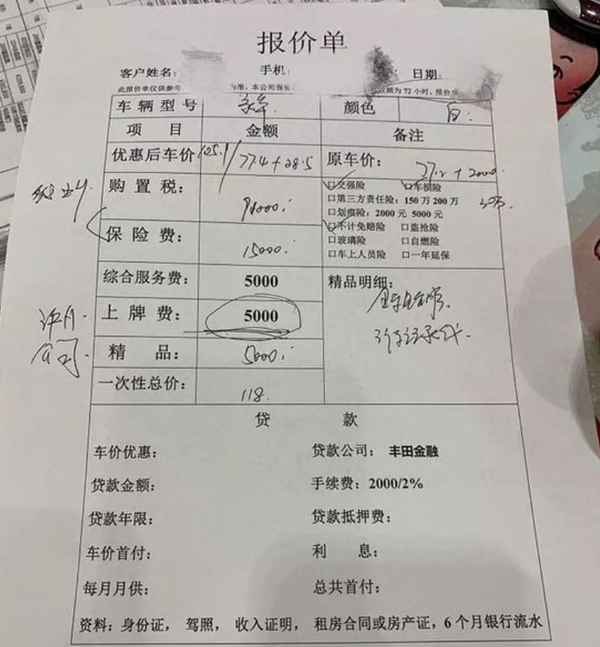 报价单
客户姓名: 手机: 日期:
此报价单仅供参考
车辆型号 颜色 白
项 目 金额 备注
优惠后车价 105.9/77.4+28.5 原车价:
购置税:
□交强险 □车损险
□第三方责任险:150万 200万
□划痕险:2000元 5000元
□不计免赔险 □盗抢险
□玻璃险 □自燃险
□车上人员险 □一年延保
保险费: 15000
综合服务费: 5000
精品明细:
上牌费: 5000
精 品: 5000
一次性总价: 118
贷 款
车价优惠: 贷款公司:丰田金融
贷款金额: 手续费:2000/2%
贷款年限: 贷款抵押费:
车价首付: 利 息:
每月月供: 总共首付:
资料:身份证,驾照,收入证明,租房合同或房产证,6个月银行流水